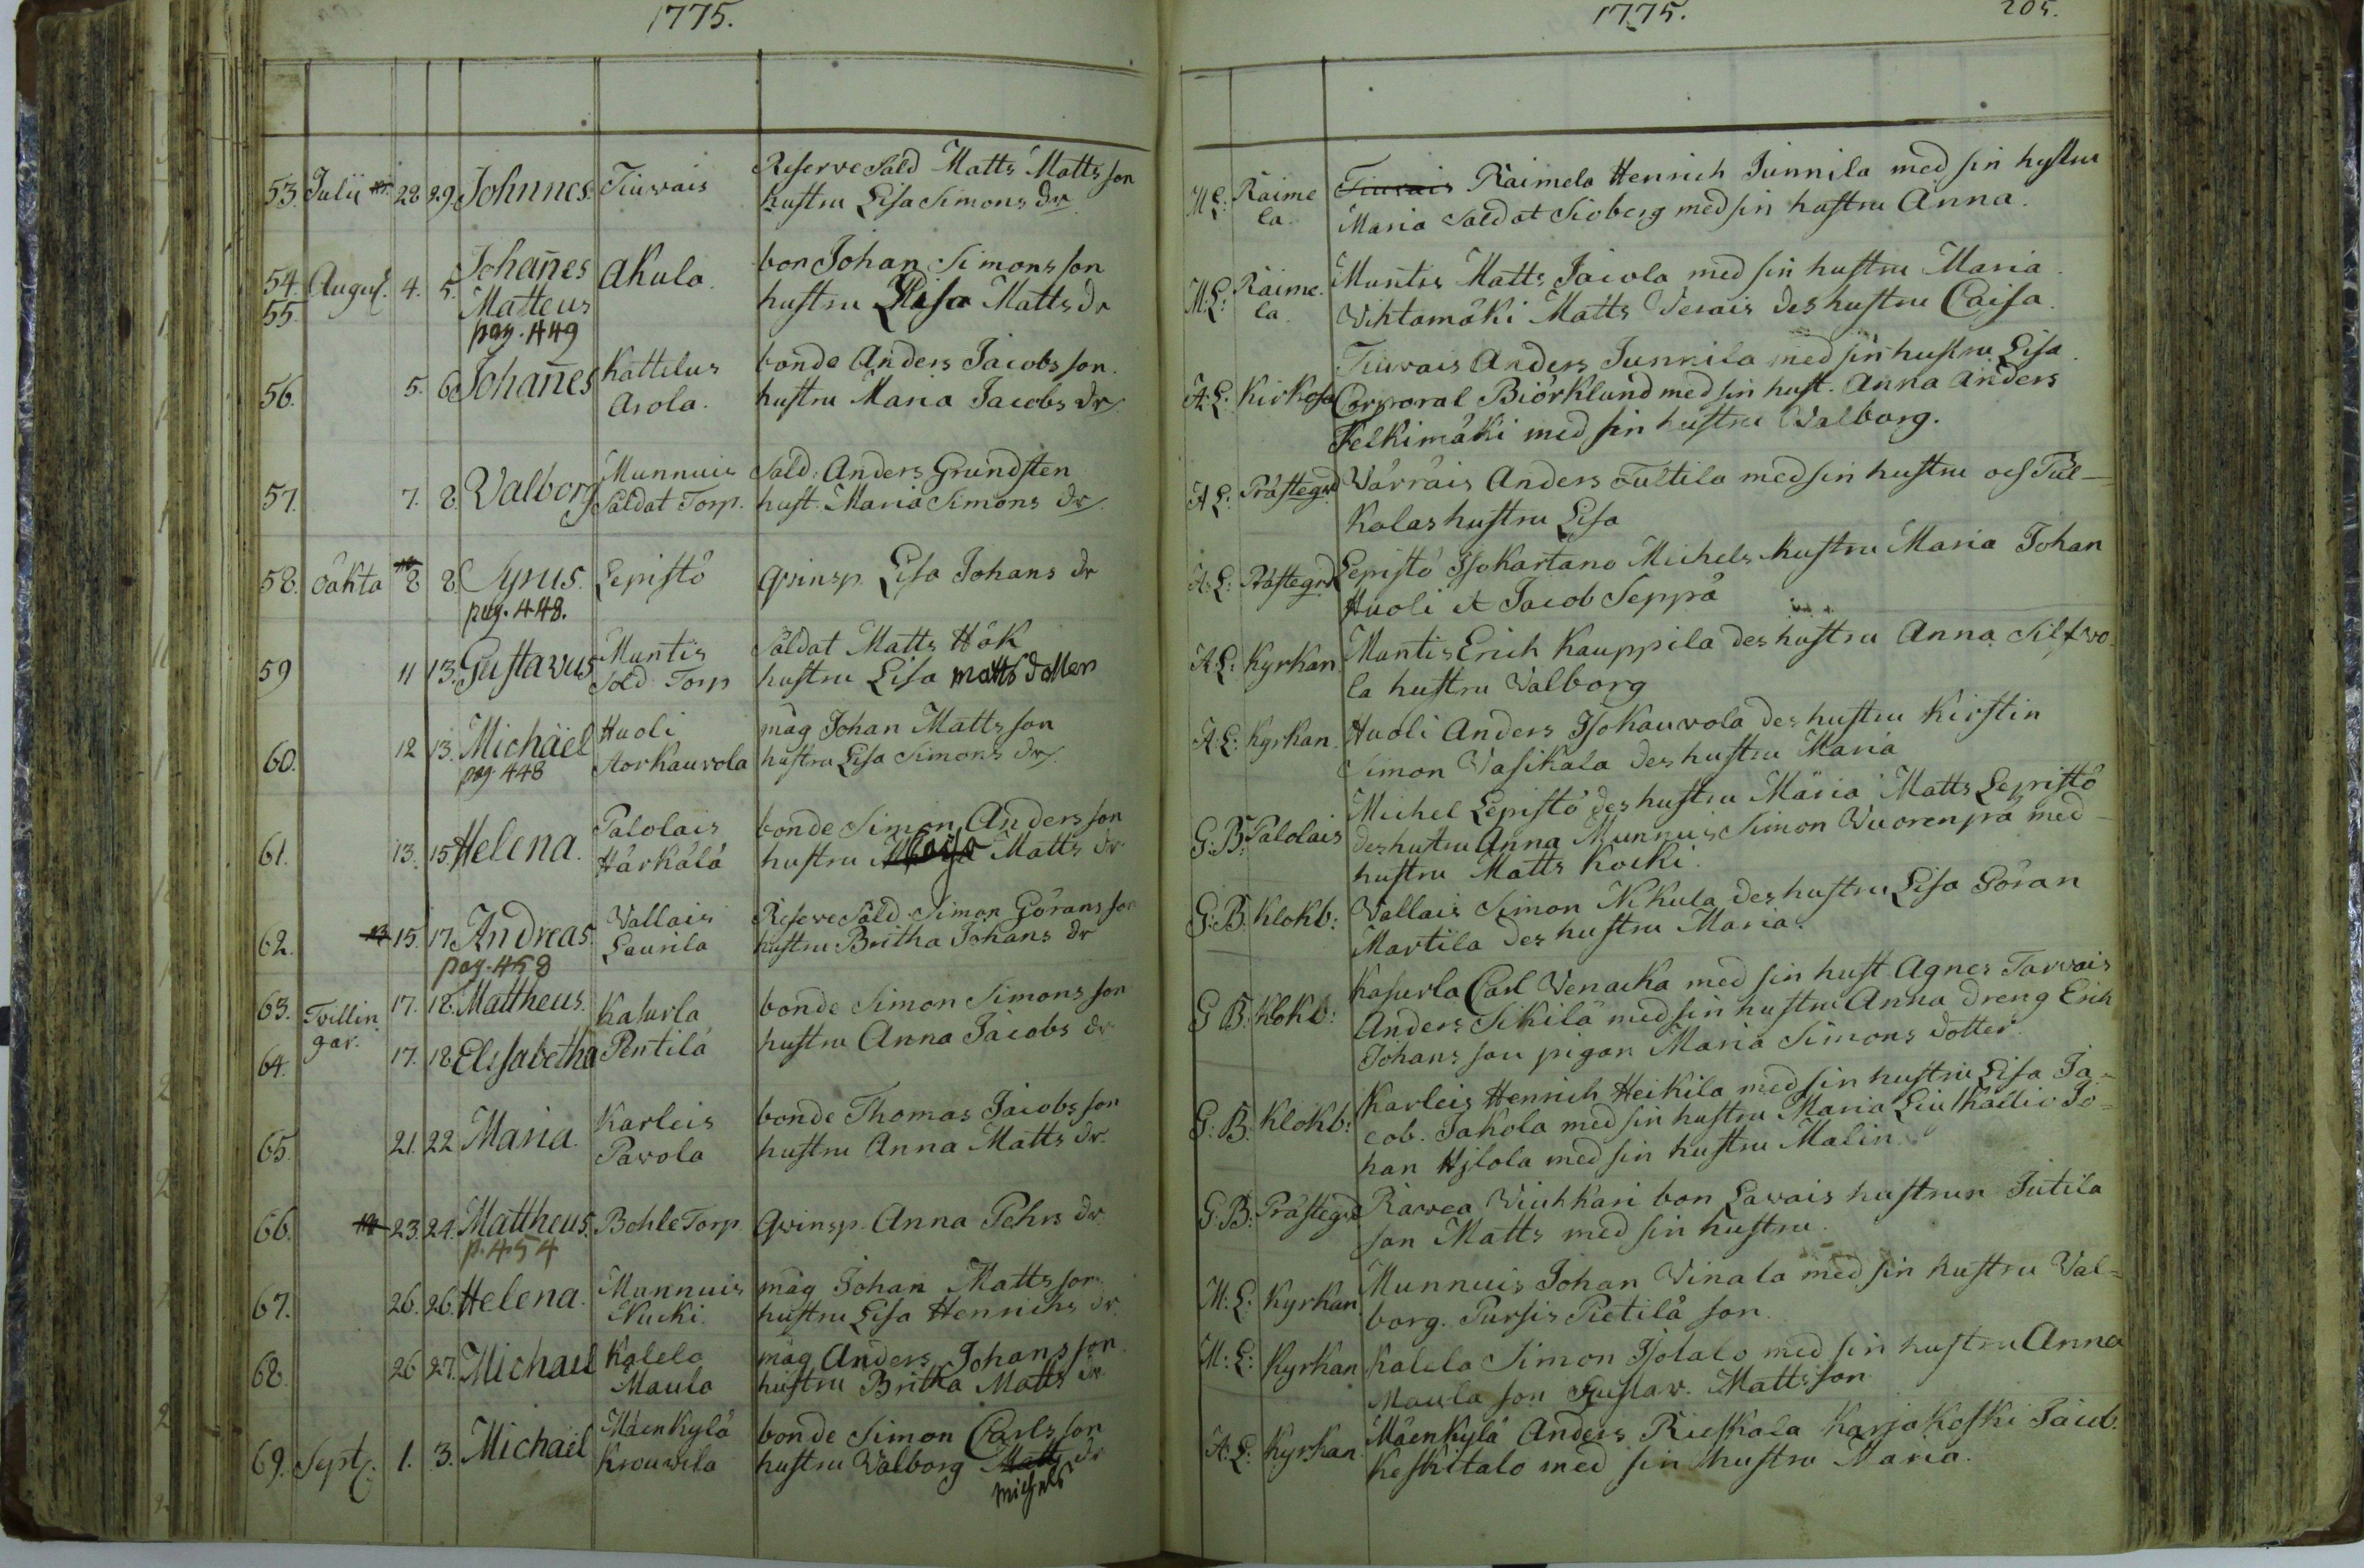 1775.
53. Julii 28 29. Johnnes. Tiuvais Reserve Sald Matts Matts son
hustru Lisa Simons dr
54. August. 4. 5. Johañes Akula. bon Johan Simons son
55. Matteus hustru Lisa Matts dr
pag. 449
56. 5. 6 Johañes Kattelus bonde Anders Jacobs son.
Arola. hustru Maria Jacobs dr
57. 7. 8. Valborg Munnuis Sald. Anders Grundsten
Saldat Torp. hust. Maria Simons dr
58. oäkta 8 8. Cyrus. Lepistö qvinsp. Lisa Johans dr
pag. 448.
59 11 13. Gustavus Muntis Saldat Matts Hök
Sold Torp hustru Lisa matts dotter
60. 12 13. Michäel Huoli måg Johan Matts son
pag 448 Aorkauvola hustru Lisa Simons dr
61. 13. 15 Helena. Palolais bonde Simon Anders son
Härkälä hustru Caisa Matts dr
62. 15. 17. Andreas. Vallais Reserve Sald Simon Görans son
Laurila hustru Britha Johans dr
pag. 458
63. Tvillin 17. 18. Mattheus. Kasurla bonde Simon Simons son
64. gar. 17. 18 Elisabetha Pentilä hustru Anna Jacobs dr
65. 21. 22 Maria. Karleis bonde Thomas Jacobs son
Pavola hustru Anna Matts dr.
66. 23. 24. Mattheus. Bohle Torp qvinsp. Anna Pehrs dr
p. 454
67. 26. 26. Helena. Munnuis måg Johan Matts son
Nucki. hustru Lisa Henrichs dr
68. 26 27. Michael Kalela måg Anders Johans son
Maula hustru Britha Matts dr
69. Sept. 1. 3. Michäel Mäenkylä bonde Simon Carls son
Krouvila hustru Valborg Matts dr
michels
1775. 205.
M. L: Raime Tiuvais Raimela Henrich Junnila med sin hustru
la. Maria Saldat Sioberg med sin hustru Anna.
M: L: Raime. Muntis Matts Jaiola med sin hustru Maria
la. Vihtamäki Matts Verais des hustru Caisa.
Tiuvais Anders Junnila med sin hustru Lisa.
A: L: Kirkosa Corporal Biörklund med sin hust. Anna Anders
Kelkimäki med sin hustru Valborg.
A L: Prästegrd Värräis Anders Tultila med sin hustru och Tul-
kalas hustru Lisa
A: L: Prästegrd Lepistö Isokartano Michels hustru Maria Johan
Huoli et Jacob Seppä
A: L: Kyrkan Muntis Erich Kauppila des hustru Anna Silfvo
la hustru Valborg
A: L: Kyrkan. Huoli Anders Isokauvola des hustru Kirstin
Simon Vasikala des hustru Maria
Michel Lepistö des hustru Maria Matts Lepistö
G: B: Palolais des hustru Anna Munnuis Simon Vuorenpä med
hustru Matts Kocki.
G: B. Klokb: Vallais Simon Nikula des hustru Lisa Göran
Martila des hustru Maria.
Kasurla Carl Venacka med sin hust Agnes Tarvais
G B: Klokb: Anders Sikilä med sin hustru Anna dreng Erich
Johans son pigan Maria Simons dotter.
Karleis Henrich Heikila med sin hustru Lisa Ja-
G: B. Klokb: cob. Jakola med sin hustru Maria Liukallio Jo-
han Hjlola med sin hustru Malin.
G: B: Prästegrd Ravea Viuhkari bon Lavais hustrun Jutila
son Matts med sin hustru.
Munnuis Johan Vinala med sin hustru Val-
M: L: Kyrkan borg. Pursis Pietilä son.
M: L: Kyrkan Kalela Simon Isotalo med sin hustru Anna
Maula son Gustav. Matts son
A: L: Kyrkan. Mäenkylä Anders Rieskala Karjakoski Jacob.
Keskitalo med sin hustru Maria.